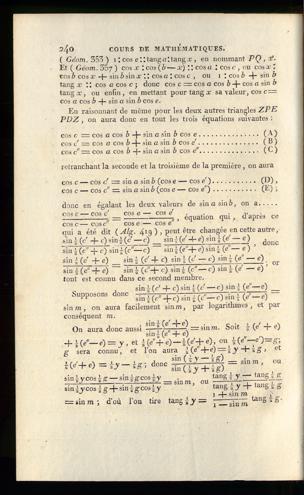 240 COURS DE MATHÉMATIQUES.
( Géom. 353 ) 1 : cos e :: tang a : tang x, en nommant PQ, x.
Et ( Géom. 357 ) cos x : cos (b — x) :: cos a : cos c, ou cos x :
cos b cos x + sin b sin x :: cos a : cos c, ou 1 : cos b + sin b
tang x :: cos a cos c; donc cos c = cos a cos b + cos a sin b
tang x, ou enfin, en mettant pour tang x sa valeur, cos c =
cos a cos b + sin a sin b cos e.
En raisonnant de même pour les deux autres triangles ZPE
PDZ, on aura donc en tout les trois équations suivantes :
cos c = cos a cos b + sin a sin b cos e .............. (A)
cos c' = cos a cos b + sin a sin b cos e' .............. (B)
cos c'' = cos a cos b + sin a sin b cos e'' .............. (C)
retranchant la seconde et la troisième de la première, on aura
cos c — cos c' = sin a sin b (cos e — cos e') .......... (D),
cos c — cos c'' = sin a sin b (cos e — cos e'') .......... (E) ;
donc en égalant les deux valeurs de sin a sin b, on a.....
(cos c — cos c')/(cos c — cos c'') = (cos e — cos e')/(cos e — cos e''), équation qui, d'après ce
qui a été dit ( Alg. 419 ), peut être changée en cette autre,
(sin ½ (c' + c) sin ½ (c' — c))/(sin ½ (c'' + c) sin ½ (c'' — c)) = (sin ½ (e' + e) sin ½ (e' — e))/(sin ½ (e'' + e) sin ½ (e'' — e)), donc
(sin ½ (e' + e))/(sin ½ (e'' + e)) = (sin ½ (c' + c) sin ½ (c' — c) sin ½ (e'' — e))/(sin ½ (c'' + c) sin ½ (c'' — c) sin ½ (e' — e)); or
tout est connu dans ce second membre.
Supposons donc (sin ½ (c' + c) sin ½ (c' — c) sin ½ (e'' — e))/(sin ½ (c'' + c) sin ½ (c'' — c) sin ½ (e' — e)) =
sin m, on aura facilement sin m, par logarithmes, et par
conséquent m.
On aura donc aussi (sin ½ (e' + e))/(sin ½ (e'' + e)) = sin m. Soit ½ (e' + e)
+ ½ (e'' — e) = y, et ½ (e'' + e) — ½ (e' + e), ou ½ (e'' — e') = g;
g sera connu, et l'on aura ½ (e'' + e) = ½ y + ½ g, et
½ (e' + e) = ½ y — ½ g; donc (sin (½ y — ½ g))/(sin (½ y + ½ g)) = sin m, ou
(sin ½ y cos ½ g — sin ½ g cos ½ y)/(sin ½ y cos ½ g + sin ½ g cos ½ y) = sin m, ou (tang ½ y — tang ½ g)/(tang ½ y + tang ½ g)
= sin m; d'où l'on tire tang ½ y = (1 + sin m)/(1 — sin m) tang ½ g.